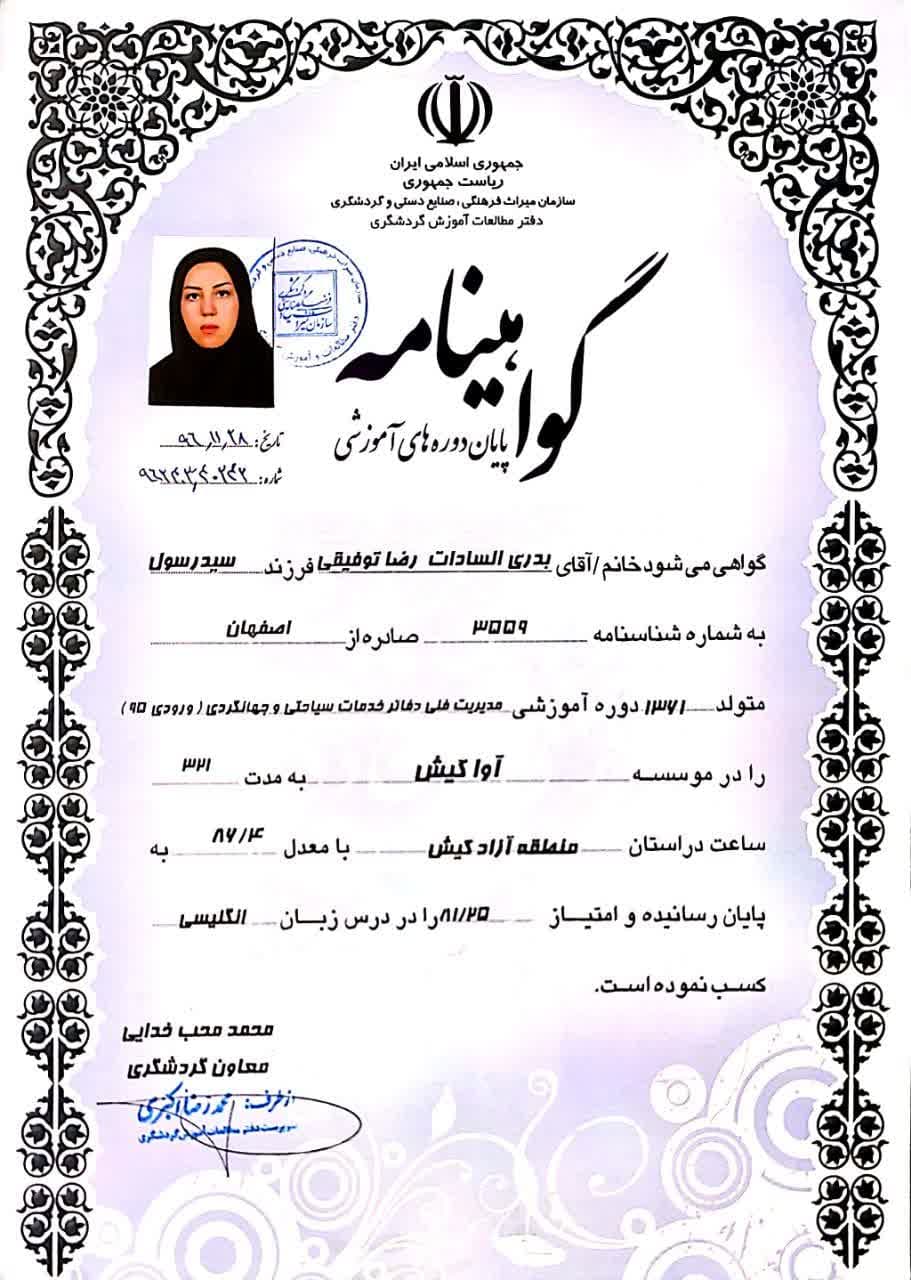 جمهوری اسلامی ایران
ریاست جمهوری
سازمان میراث فرهنگی، صنایع دستی و گردشگری
دفتر مطالعات آموزش گردشگری
گواهینامه
پایان دوره های آموزشی
تاریخ: ۹۶٫۱۱٫۲۸
شماره:
گواهی می شود خانم/آقای بدری السادات رضا توفیقی فرزند سیدرسول
به شماره شناسنامه ۳۵۵۹ صادره از اصفهان
متولد ۱۳۶۱ دوره آموزشی مدیریت فنی دفاتر خدمات سیاحتی و جهانگردی (ورودی ۹۵)
را در موسسه آوا کیش به مدت ۳۲۱
ساعت در استان منطقه آزاد کیش با معدل ۸۶/۴ به
پایان رسانیده و امتیاز ۸۱/۲۵ را در درس زبان انگلیسی
کسب نموده است.
محمد محب خدایی
معاون گردشگری
از طرف: محمدرضا اکبری
سرپرست دفتر مطالعات آموزش گردشگری